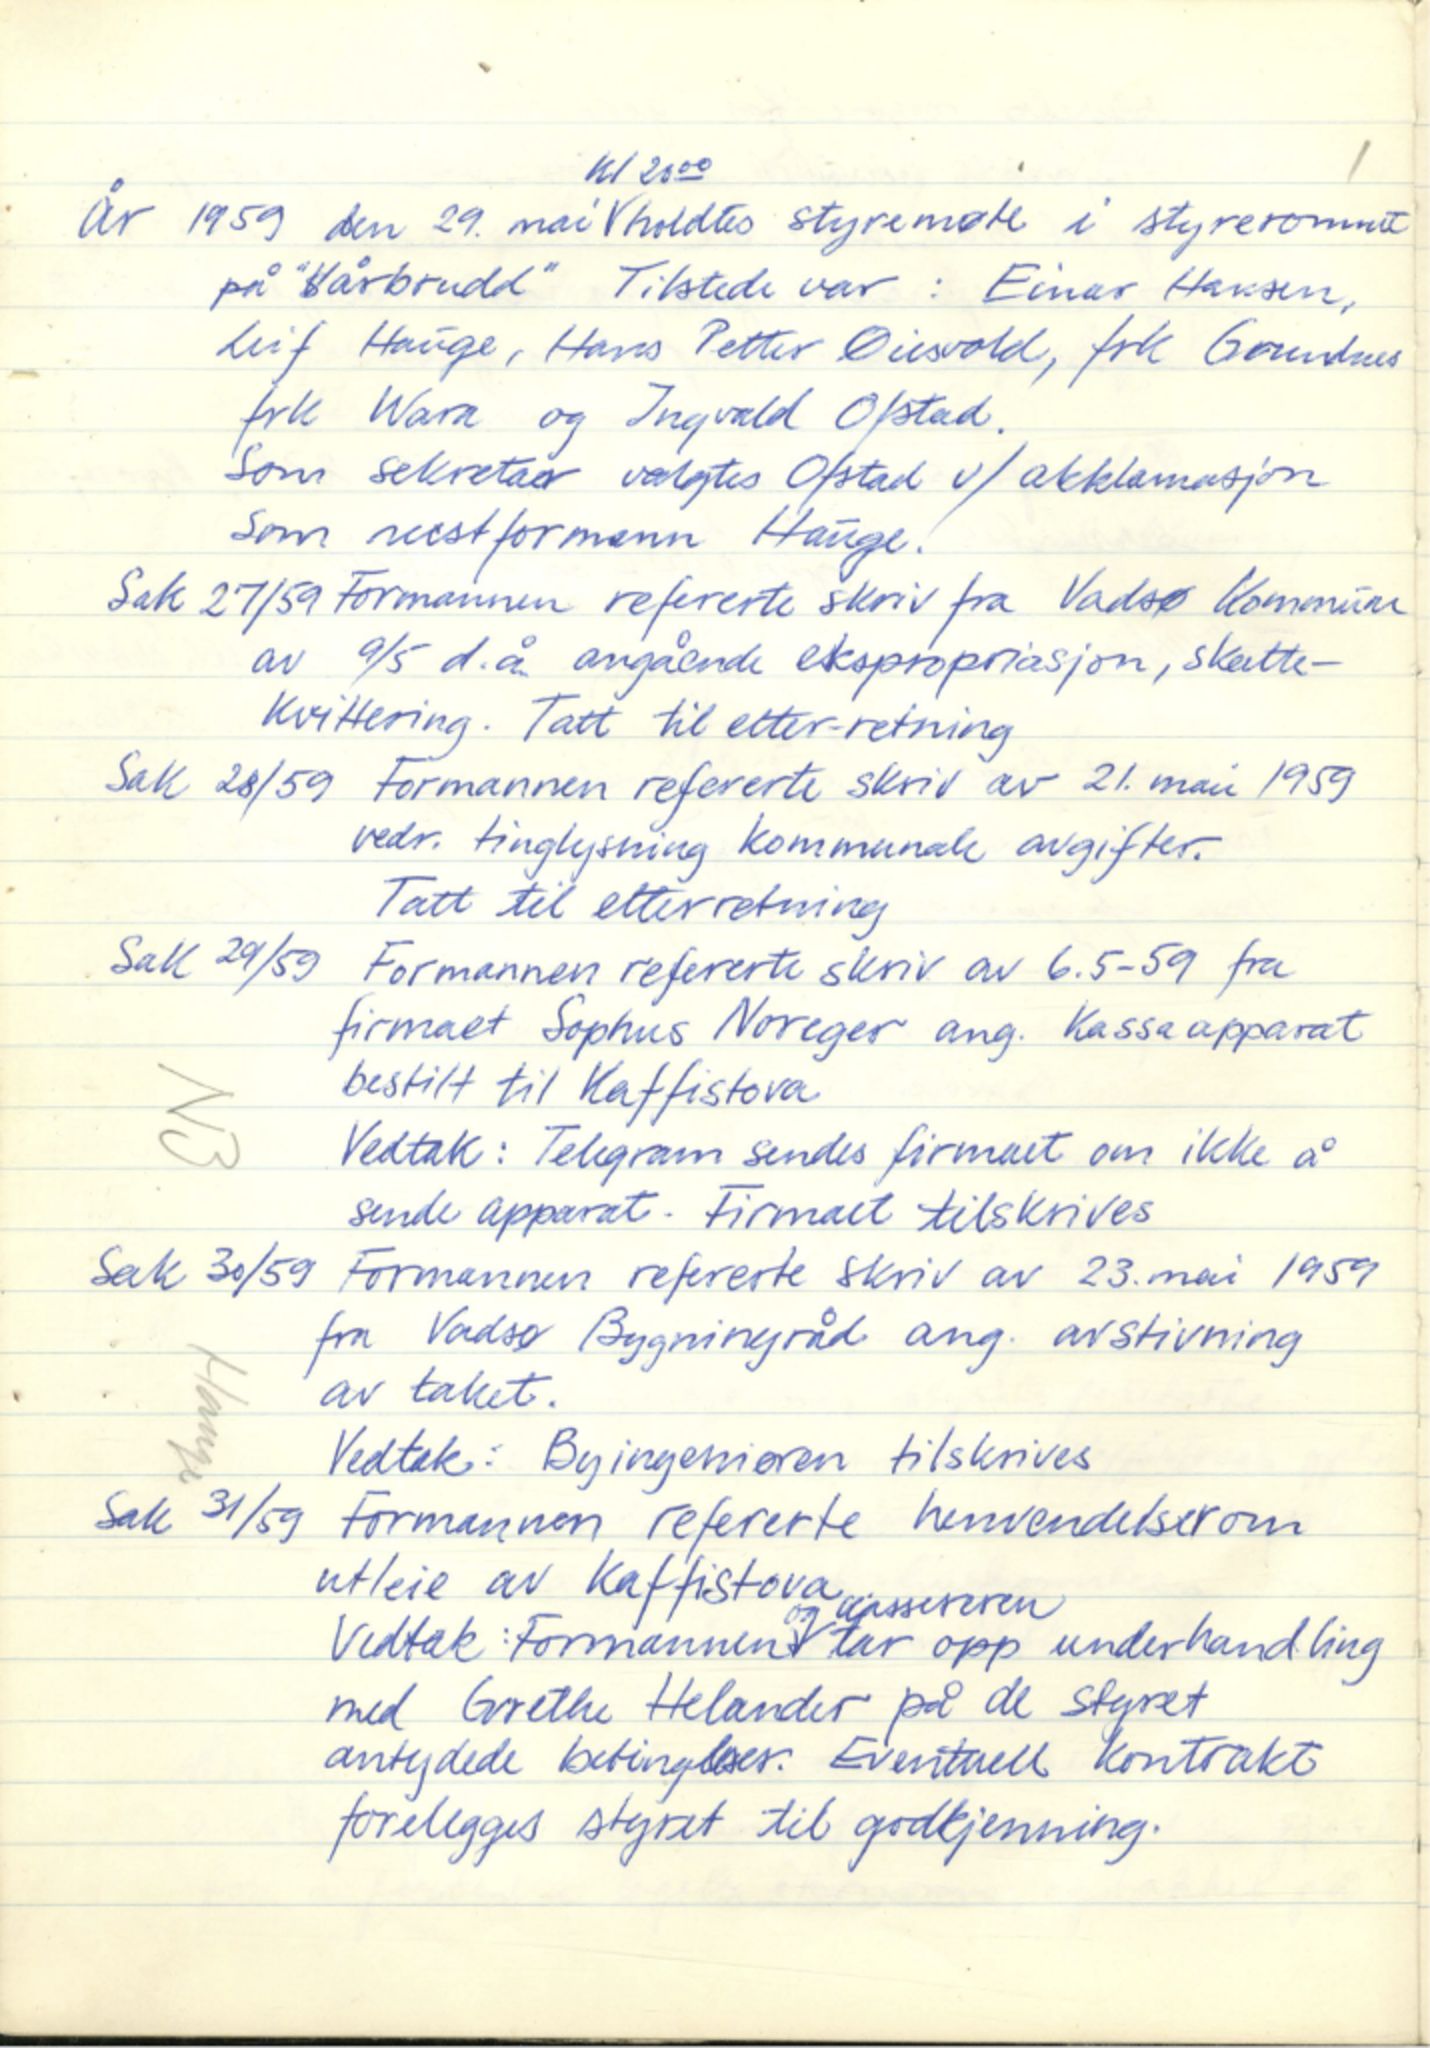 1
Kl 20⁰⁰
År 1959 den 29. mai V holdtes styremøte i styrerommet
på "Vårbrudd" Tilstede var : Einar Hansen,
Leif Hauge, Hans Petter Oiesvold, frk Grundnes
frk Wara og Ingvald Ofstad.
Som sekretær valgtes Ofstad v/ akklamasjon
Som nestformann Hauge.
Sak 27/59 Formannen refererte skriv fra Vadsø Kommune
av 9/5 d.å. angående ekspropriasjon, skatte-
kvittering. Tatt til etter-retning
Sak 28/59 Formannen refererte skriv av 21. mai 1959
vedr. tinglysning kommunale avgifter.
Tatt til etterretning
Sak 29/59 Formannen refererte skriv av 6.5-59 fra
firmaet Sophus Noreger ang. Kassaapparat
bestilt til Kaffistova
NB
Vedtak : Telegram sendes firmaet om ikke å
sende apparat. Firmaet tilskrives
Sak 30/59 Formannen refererte skriv av 23. mai 1959
fra Vadsø Bygningsråd ang. avstivning
av taket.
Hauge
Vedtak : Byingeniøren tilskrives
Sak 31/59 Formannen refererte henvendelser om
utleie av Kaffistova
og kassereren
Vedtak : Formannen V tar opp underhandling
med Grethe Helander på de styret
antydede betingelser. Eventuell kontrakt
forelegges styret til godkjenning.